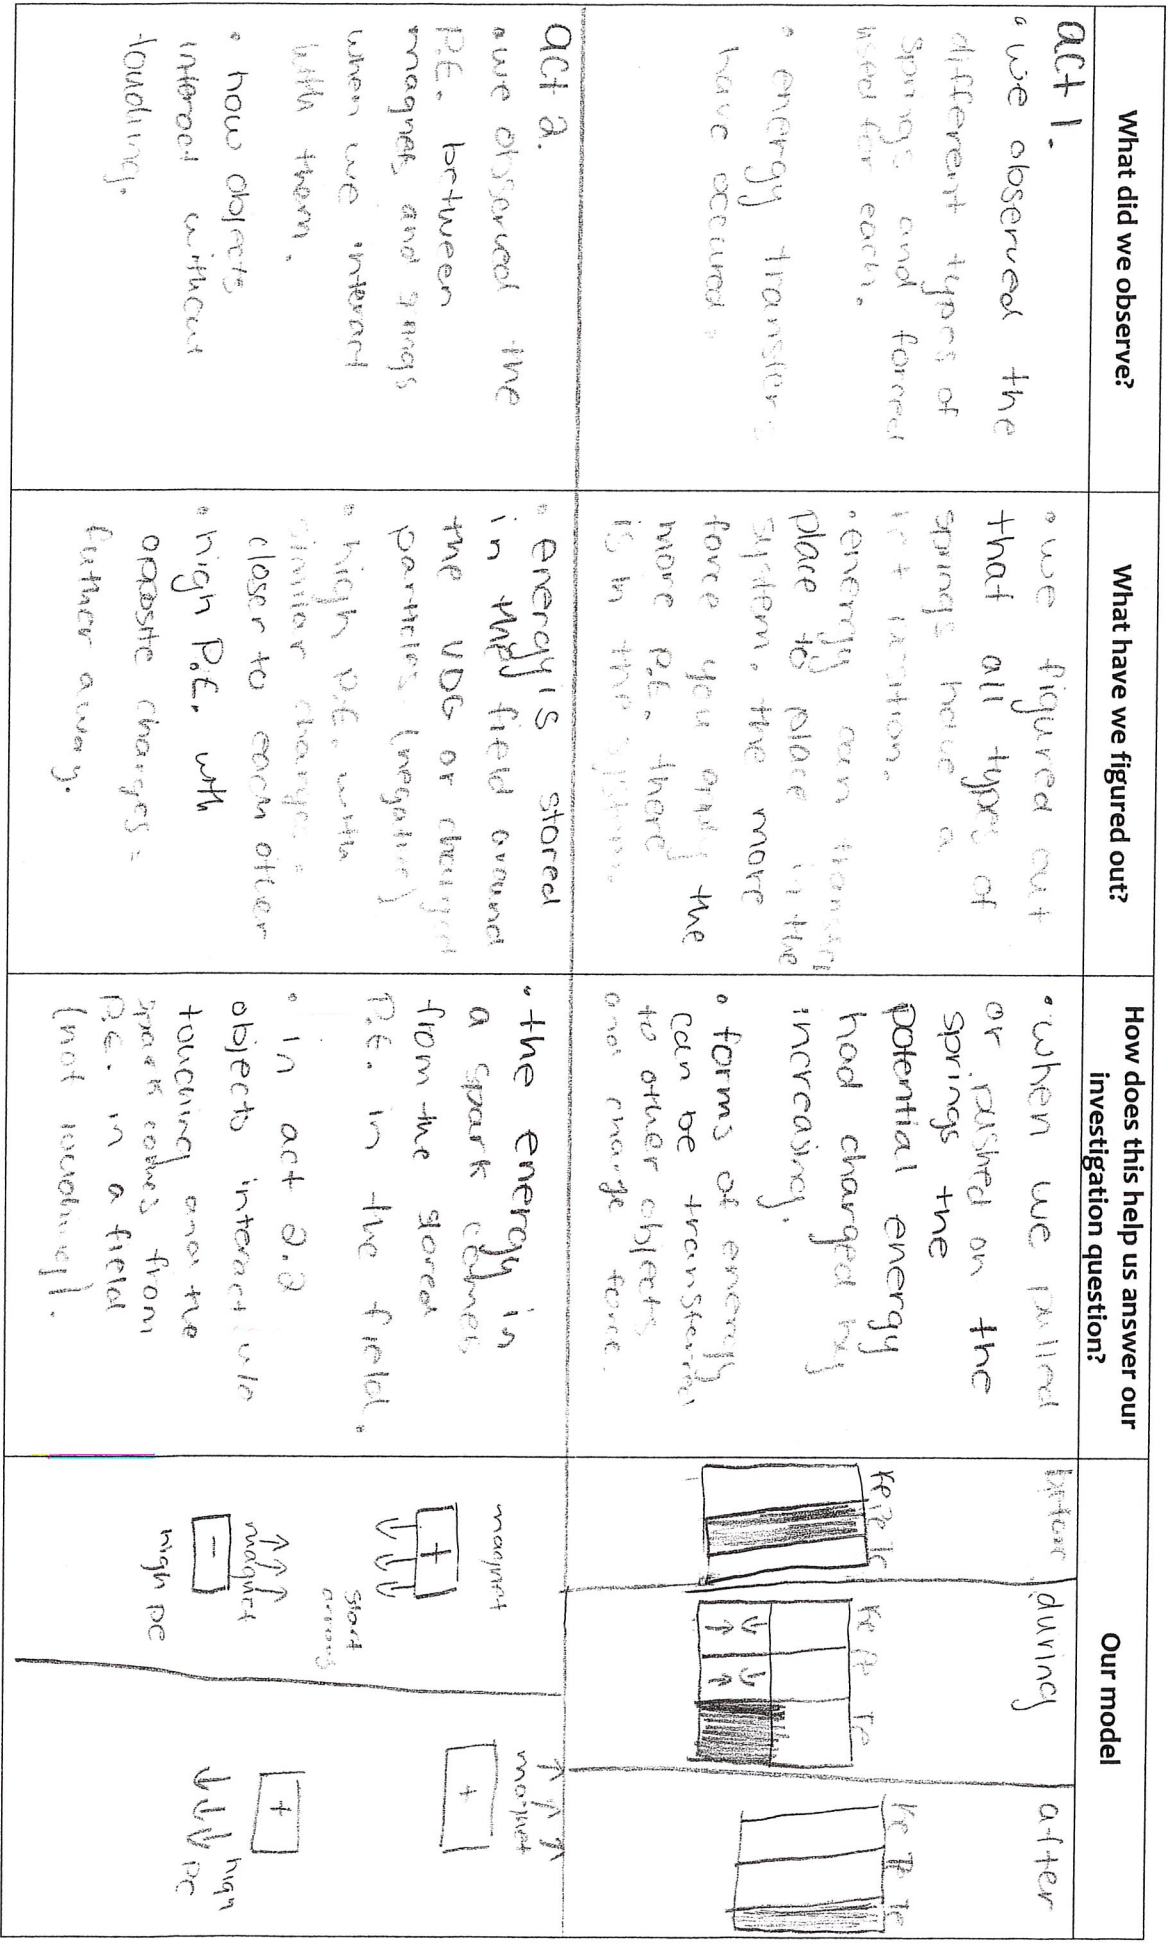 What did we observe?
What have we figured out?
How does this help us answer our
investigation question?
Our model
act 1.
• we observed the
different types of
springs and forced
used for each.
• energy transfers
have occured.
• we figured out
that all types of
springs have a
• energy can transfer
place to place in the
system. the more
force you apply the
more P.E. there
is in the system.
• when we pulled
or pushed on the
springs the
potential energy
had changed by
increasing.
• forms of energy
can be transferred
to other objects
and change force.
before
Ke Pe Te
during
Ke Pe Te
after
Ke Pe Te
act 2.
• we observed the
P.E. between
magnets and springs
when we interact
with them.
• how objects
interact without
touching.
• energy is stored
in the field around
the VDG or charged
particles (negative)
• high P.E. with
similar charges
closer to each other
• high P.E. with
opposite charges
futher away.
• the energy in
a spark comes
from the stored
P.E. in the field.
• in act 2.2
objects interact w/o
touching and the
spark comes from
P.E. in a field
(not touching).
magnet
+
start
arrows
magnet
-
high PE
magnet
+
+
high
PE